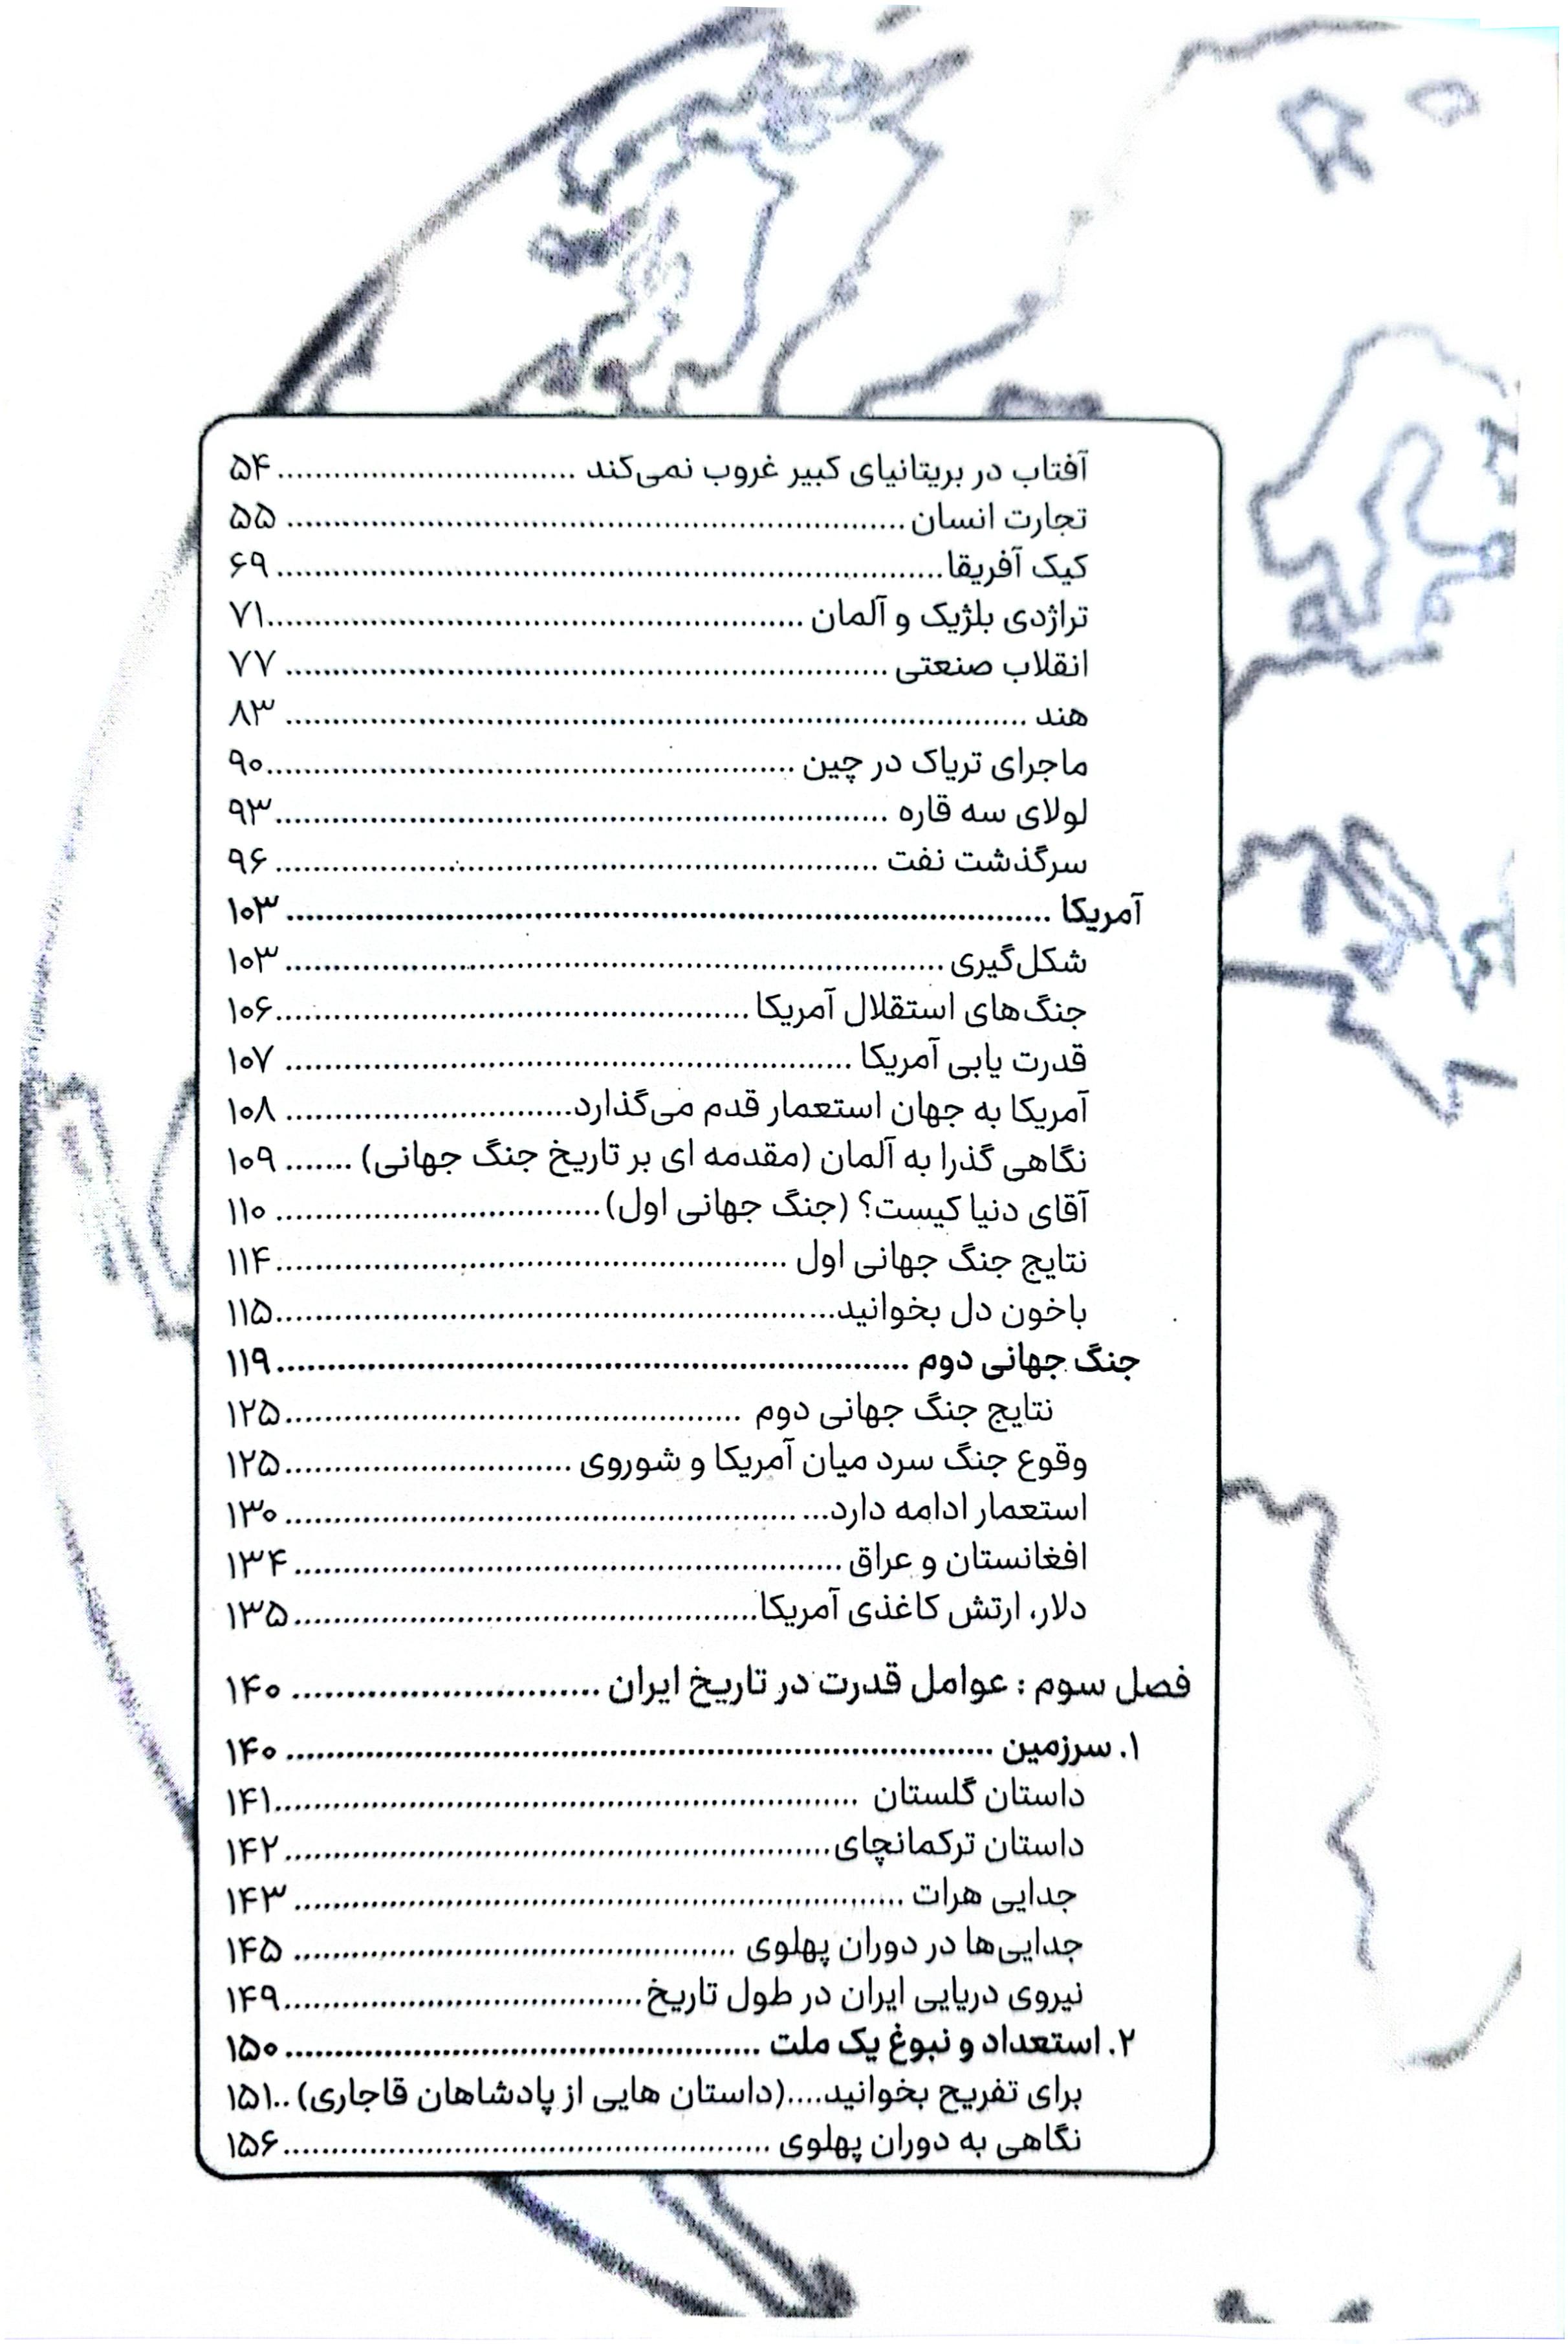 آفتاب در بریتانیای کبیر غروب نمی‌کند ............................... ۵۴
تجارت انسان ............................................................... ۵۵
کیک آفریقا .................................................................... ۶۹
تراژدی بلژیک و آلمان ...................................................... ۷۱
انقلاب صنعتی ............................................................. ۷۷
هند ............................................................................ ۸۳
ماجرای تریاک در چین ...................................................... ۹۰
لولای سه قاره .............................................................. ۹۳
سرگذشت نفت ............................................................. ۹۶
آمریکا .......................................................................... ۱۰۳
شکل‌گیری ................................................................... ۱۰۳
جنگ‌های استقلال آمریکا ................................................ ۱۰۶
قدرت یابی آمریکا .......................................................... ۱۰۷
آمریکا به جهان استعمار قدم می‌گذارد ............................. ۱۰۸
نگاهی گذرا به آلمان (مقدمه ای بر تاریخ جنگ جهانی) ....... ۱۰۹
آقای دنیا کیست؟ (جنگ جهانی اول) ................................. ۱۱۰
نتایج جنگ جهانی اول .................................................... ۱۱۴
باخون دل بخوانید... ....................................................... ۱۱۵
جنگ جهانی دوم ............................................................ ۱۱۹
نتایج جنگ جهانی دوم .................................................. ۱۲۵
وقوع جنگ سرد میان آمریکا و شوروی ............................. ۱۲۵
استعمار ادامه دارد... .................................................... ۱۳۰
افغانستان و عراق ........................................................ ۱۳۴
دلار، ارتش کاغذی آمریکا ................................................ ۱۳۵
فصل سوم : عوامل قدرت در تاریخ ایران ............................ ۱۴۰
۱. سرزمین .................................................................... ۱۴۰
داستان گلستان ............................................................ ۱۴۱
داستان ترکمانچای ......................................................... ۱۴۲
جدایی هرات ................................................................ ۱۴۳
جدایی‌ها در دوران پهلوی .............................................. ۱۴۵
نیروی دریایی ایران در طول تاریخ ..................................... ۱۴۹
۲. استعداد و نبوغ یک ملت .............................................. ۱۵۰
برای تفریح بخوانید....(داستان هایی از پادشاهان قاجاری) .. ۱۵۱
نگاهی به دوران پهلوی .................................................. ۱۵۶